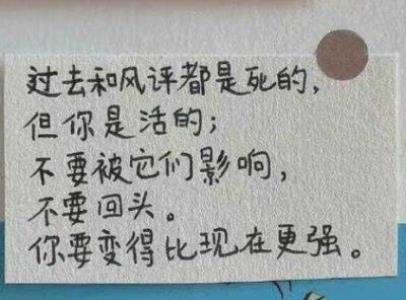 过去和风评都是死的，
但你是活的；
不要被它们影响，
不要回头。
你要变得比现在更强。